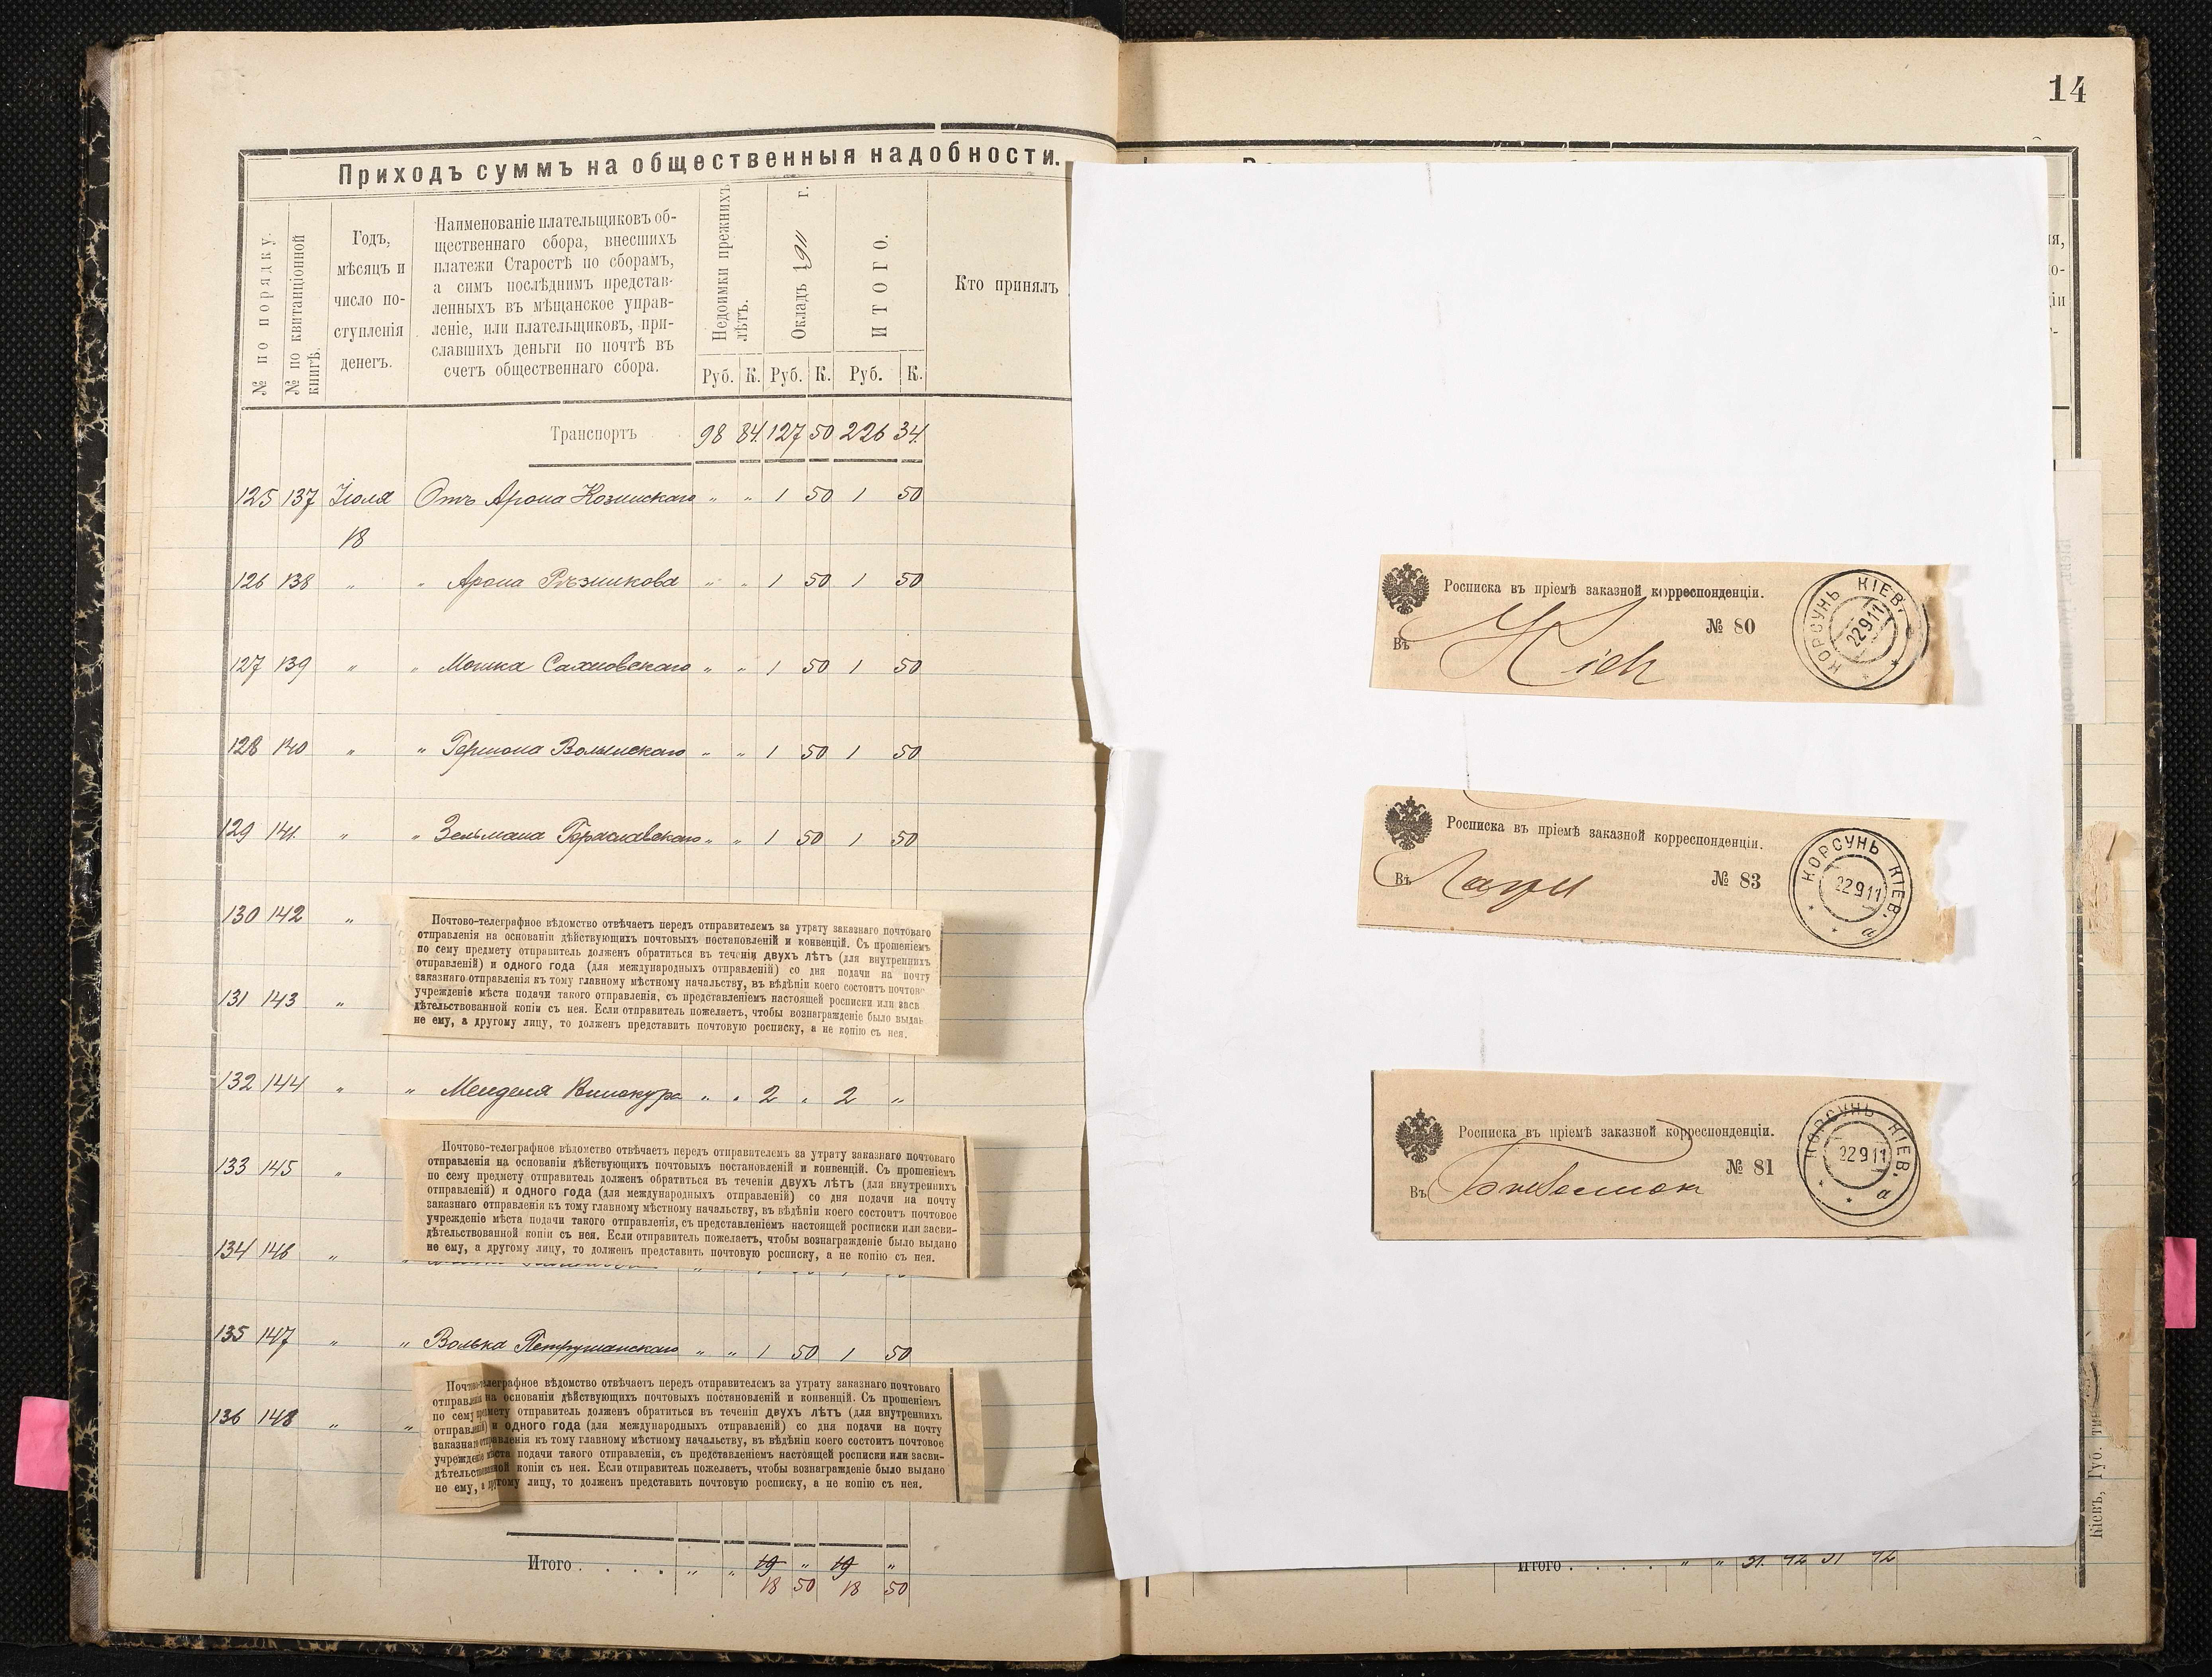 14
Приходъ суммъ на общественныя надобности.
№ по порядку.
№ по квитанціонной книгѣ.
Годъ,
мѣсяцъ и
число по-
ступленія
денегъ.
Наименованіе плательщиковъ об-
щественнаго сбора, внесшихъ
платежи Старостѣ по сборамъ,
а симъ послѣднимъ представ-
ленныхъ въ мѣщанское управ-
леніе, или плательщиковъ, при-
славшихъ деньги по почтѣ въ
счетъ общественнаго сбора.
Недоимки прежнихъ лѣтъ.
Окладъ 1911 г.
ИТОГО.
Кто принялъ
Руб. К. Руб. К. Руб. К.
Транспортъ 98 84 127 50 226 34
125 137 Іюля Отъ Арона Козинскаго " " 1 50 1 50
18
126 138 " " Арона Рѣзникова " " 1 50 1 50
127 139 " " Мошка Сахновскаго " " 1 50 1 50
128 140 " " Гершона Волынскаго " " 1 50 1 50
129 141 " " Зельмана " " 1 50 1 50
130 142 "
Почтово-телеграфное вѣдомство отвѣчаетъ передъ отправителемъ за утрату заказнаго почтоваго
отправленія на основаніи дѣйствующихъ почтовыхъ постановленій и конвенцій. Съ прошеніемъ
по сему предмету отправитель долженъ обратиться въ теченіи двухъ лѣтъ (для внутреннихъ
отправленій) и одного года (для международныхъ отправленій) со дня подачи на почту
заказнаго отправленія къ тому главному мѣстному начальству, въ вѣдѣніи коего состоитъ почтов
учрежденіе мѣста подачи такого отправленія, съ представленіемъ настоящей росписки или засв
дѣтельствованной копіи съ нея. Если отправитель пожелаетъ, чтобы вознагражденіе было выдан
не ему, а другому лицу, то долженъ представить почтовую росписку, а не копію съ нея.
131 143 "
132 144 " " Менделя Винокура " " 2 " 2 "
133 145 "
Почтово-телеграфное вѣдомство отвѣчаетъ передъ отправителемъ за утрату заказнаго почтоваго
отправленія на основаніи дѣйствующихъ почтовыхъ постановленій и конвенцій. Съ прошеніемъ
по сему предмету отправитель долженъ обратиться въ теченіи двухъ лѣтъ (для внутреннихъ
отправленій) и одного года (для международныхъ отправленій) со дня подачи на почту
заказнаго отправленія къ тому главному мѣстному начальству, въ вѣдѣніи коего состоитъ почтовое
учрежденіе мѣста подачи такого отправленія, съ представленіемъ настоящей росписки или засви-
дѣтельствованной копіи съ нея. Если отправитель пожелаетъ, чтобы вознагражденіе было выдано
не ему, а другому лицу, то долженъ представить почтовую росписку, а не копію съ нея.
134 146 " "
135 147 " " Волька Петрушанскаго " " 1 50 1 50
136 148 " "
Почтово-телеграфное вѣдомство отвѣчаетъ передъ отправителемъ за утрату заказнаго почтоваго
отправленія на основаніи дѣйствующихъ почтовыхъ постановленій и конвенцій. Съ прошеніемъ
по сему предмету отправитель долженъ обратиться въ теченіи двухъ лѣтъ (для внутреннихъ
отправленій) и одного года (для международныхъ отправленій) со дня подачи на почту
заказнаго отправленія къ тому главному мѣстному начальству, въ вѣдѣніи коего состоитъ почтовое
учрежденіе мѣста подачи такого отправленія, съ представленіемъ настоящей росписки или засви-
дѣтельствованной копіи съ нея. Если отправитель пожелаетъ, чтобы вознагражденіе было выдано
не ему, а другому лицу, то долженъ представить почтовую росписку, а не копію съ нея.
Итого . . . . " " 19 " 19 "
18 50 18 50
Росписка въ пріемѣ заказной корреспонденціи.
№ 80
Въ Кіев
КОРСУНЬ КІЕВ.
22 9 11
Росписка въ пріемѣ заказной корреспонденціи.
Въ № 83
КОРСУНЬ КІЕВ.
22 9 11
а
Росписка въ пріемѣ заказной корреспонденціи.
№ 81
Въ
КОРСУНЬ КІЕВ.
22 9 11
а
Итого . . . . " " 31 42 31 42
Кіевъ, Губ. ти